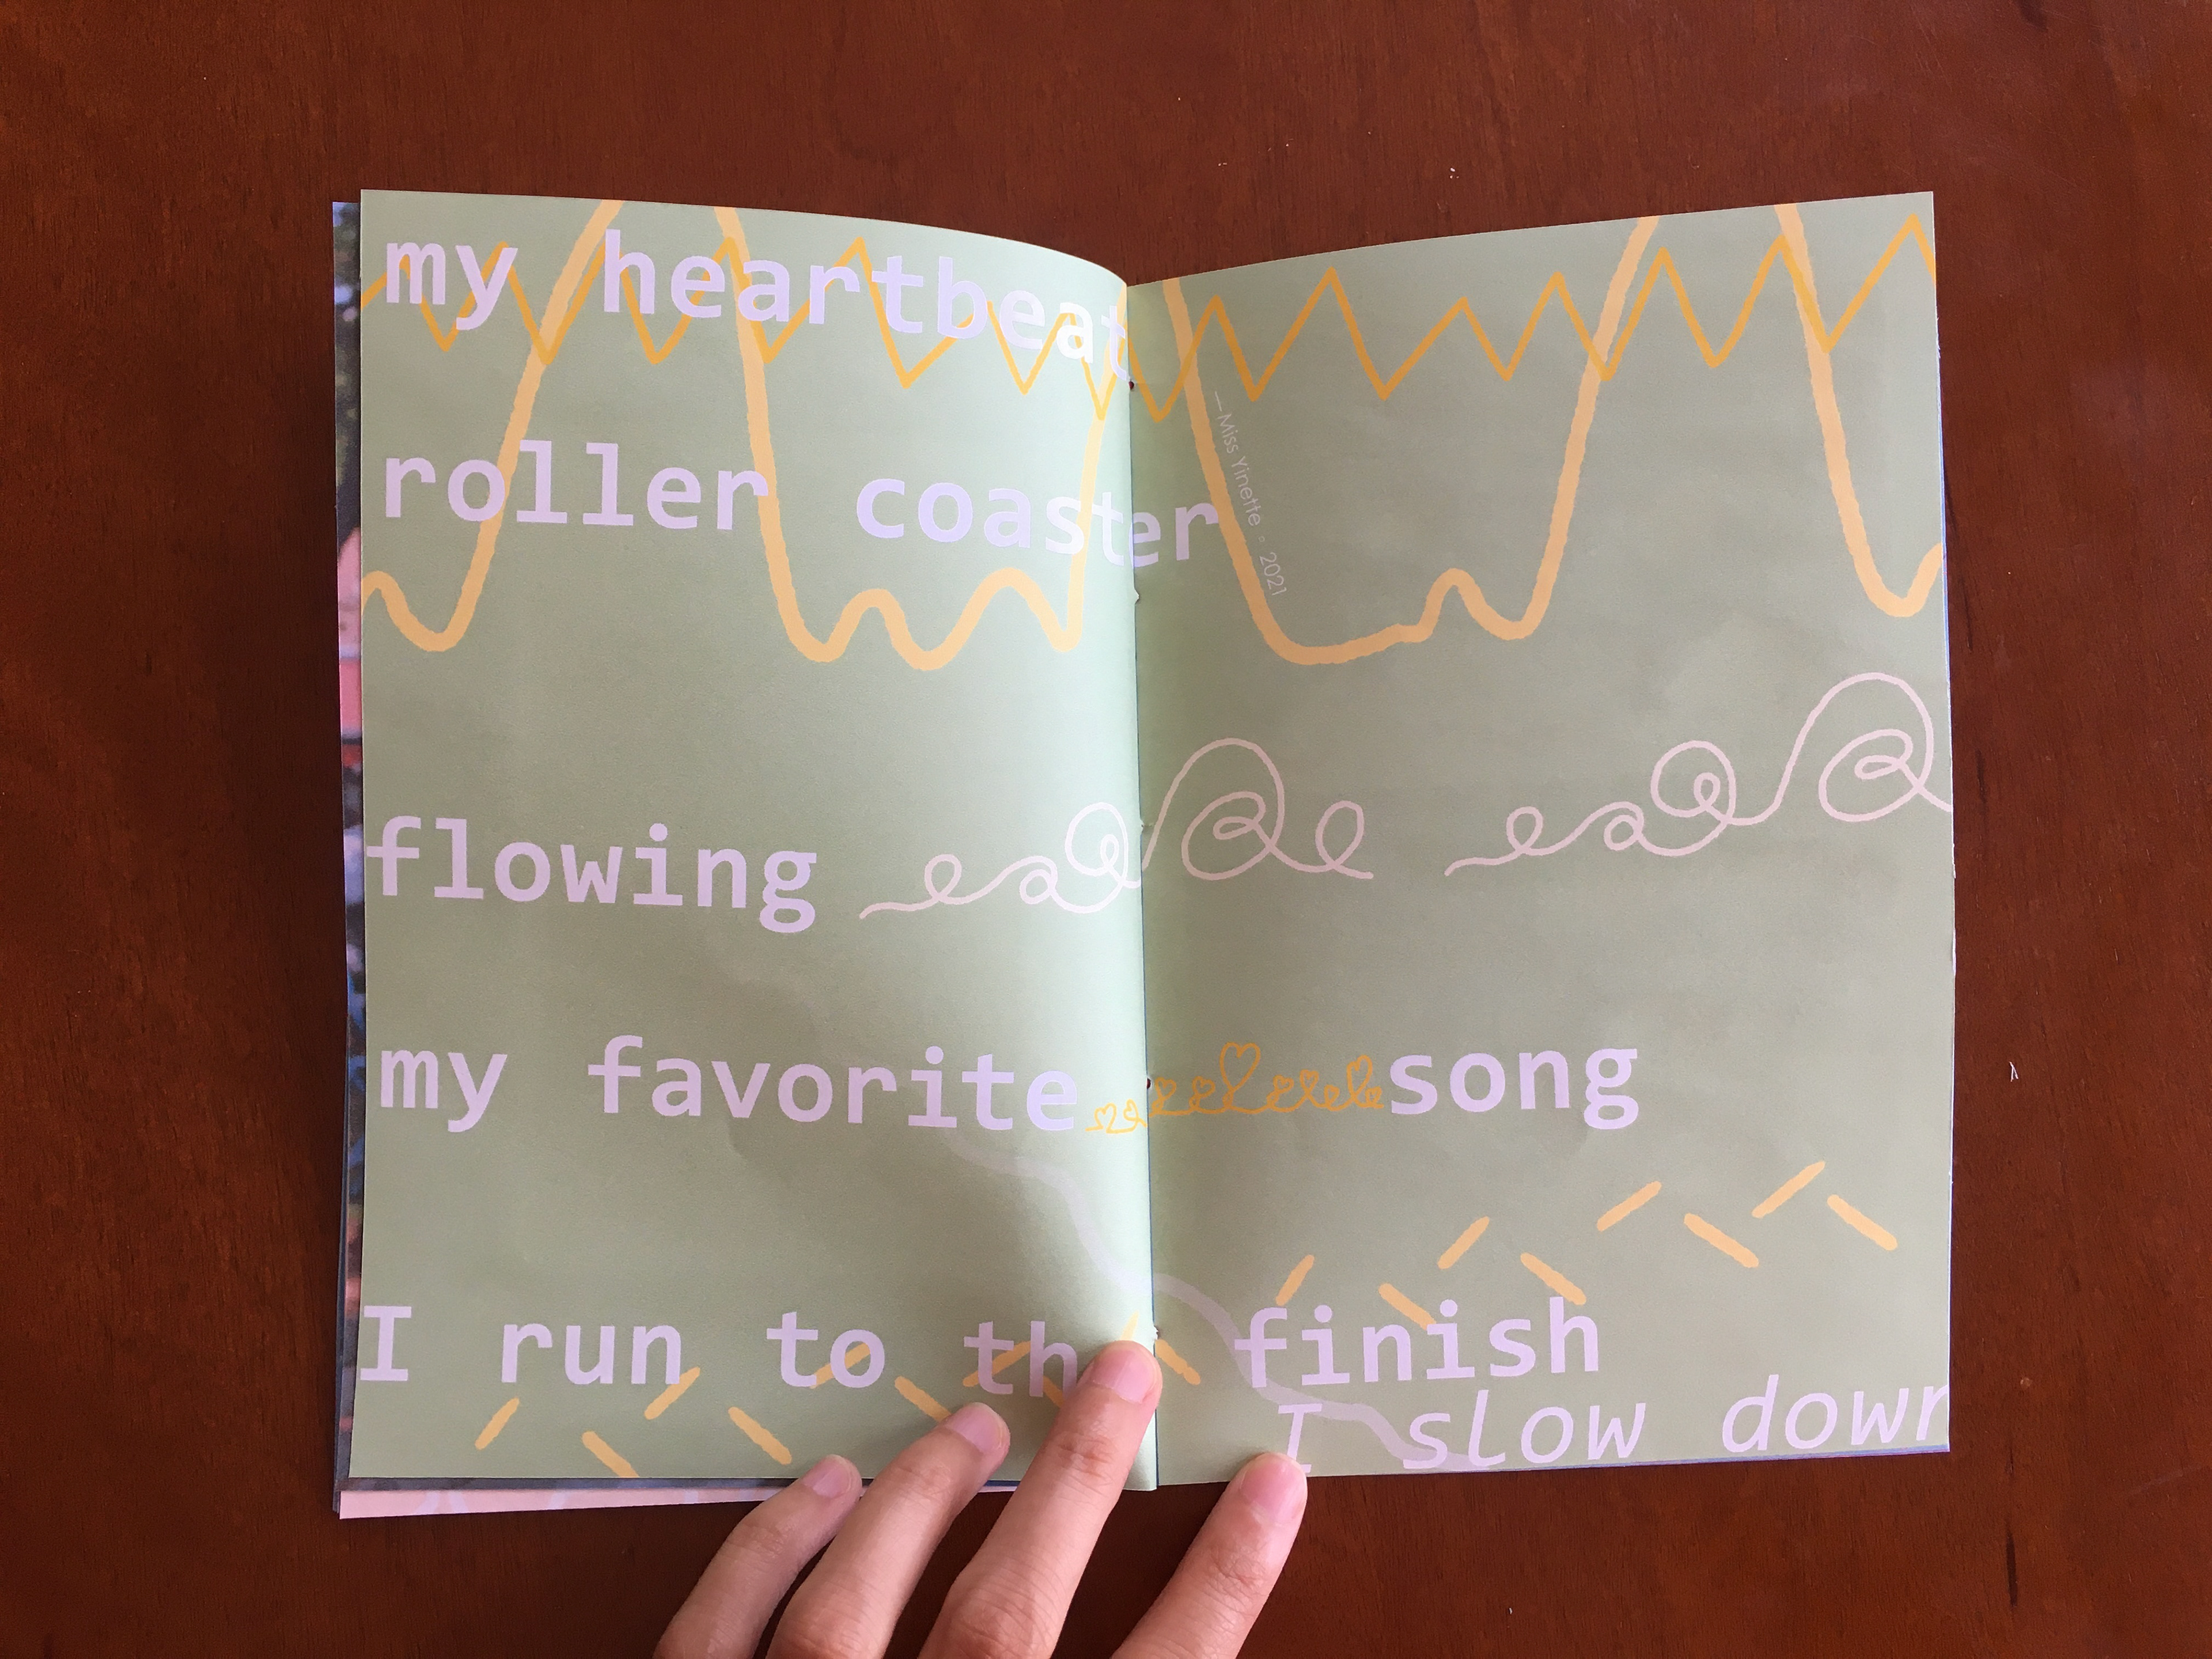 my heartbeat
roller coaster
—Miss Yinette ◦ 2021
flowing
my favorite song
I run to th finish
I slow down